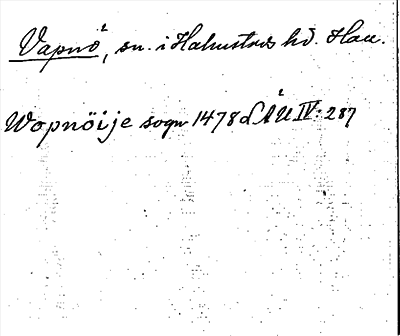 Vapnö, sn. i Halmstads hd. Hall.
Wopnöije sogn 1478 LÅU IV: 287